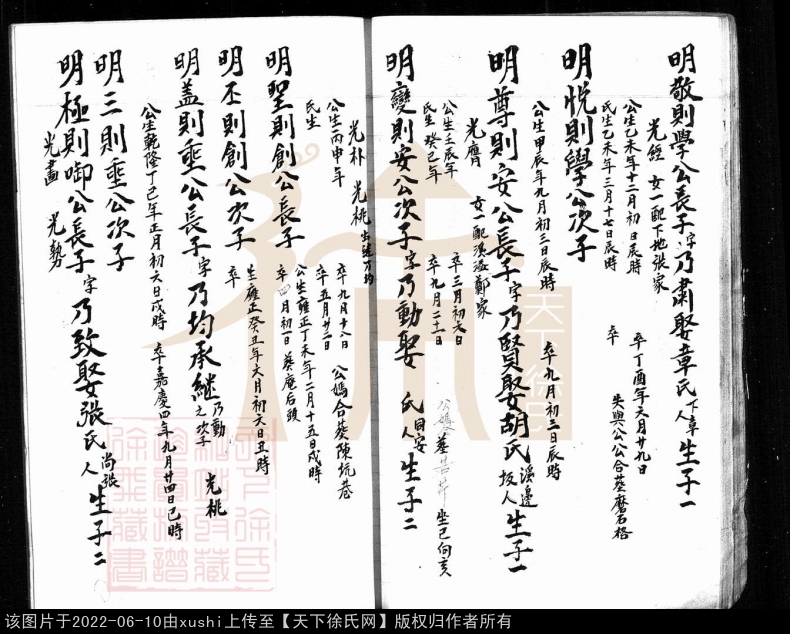 明敬則學公長子字乃肅娶章氏下章人生子一
公生乙未年十二月初一日辰時 卒丁酉年六月廿九日
氏生乙未年三月十七日辰時 卒 失與公公合葬磨石格
光經 女一配下地張家
明悅則學公次子
公生甲辰年九月初三日辰時 卒九月初三日辰時
明尊則安公長子字乃賢娶胡氏溪邊坂人生子一
光膺 女一配溪滋鄭家
公生壬辰年 卒三月初六日
氏生癸巳年 卒九月二十一日
明變則安公次子字乃動娶 氏同安人生子二
坐己向亥
光朴 光桃出繼乃均
公生丙申年 卒九月十八日 公媽合葵陳坑巷
氏生 卒五月廿二日
明聖則創公長子
公生雍正丁未年二月十五日戌時
卒四月初一日 葵庵后頭
明丕則創公次子 生雍正癸丑年六月初六日丑時
卒
明盖則重公長子字乃均承継乃動之次子 光桃
公生乾隆丁巳年正月初六日戌時 卒嘉慶四年九月廿四日巳時
明三則重公次子
明極則御公長子字乃致娶張氏尚張人生子二
光畫 光勢
天下徐氏
该图片于2022-06-10由xushi上传至【天下徐氏网】版权归作者所有